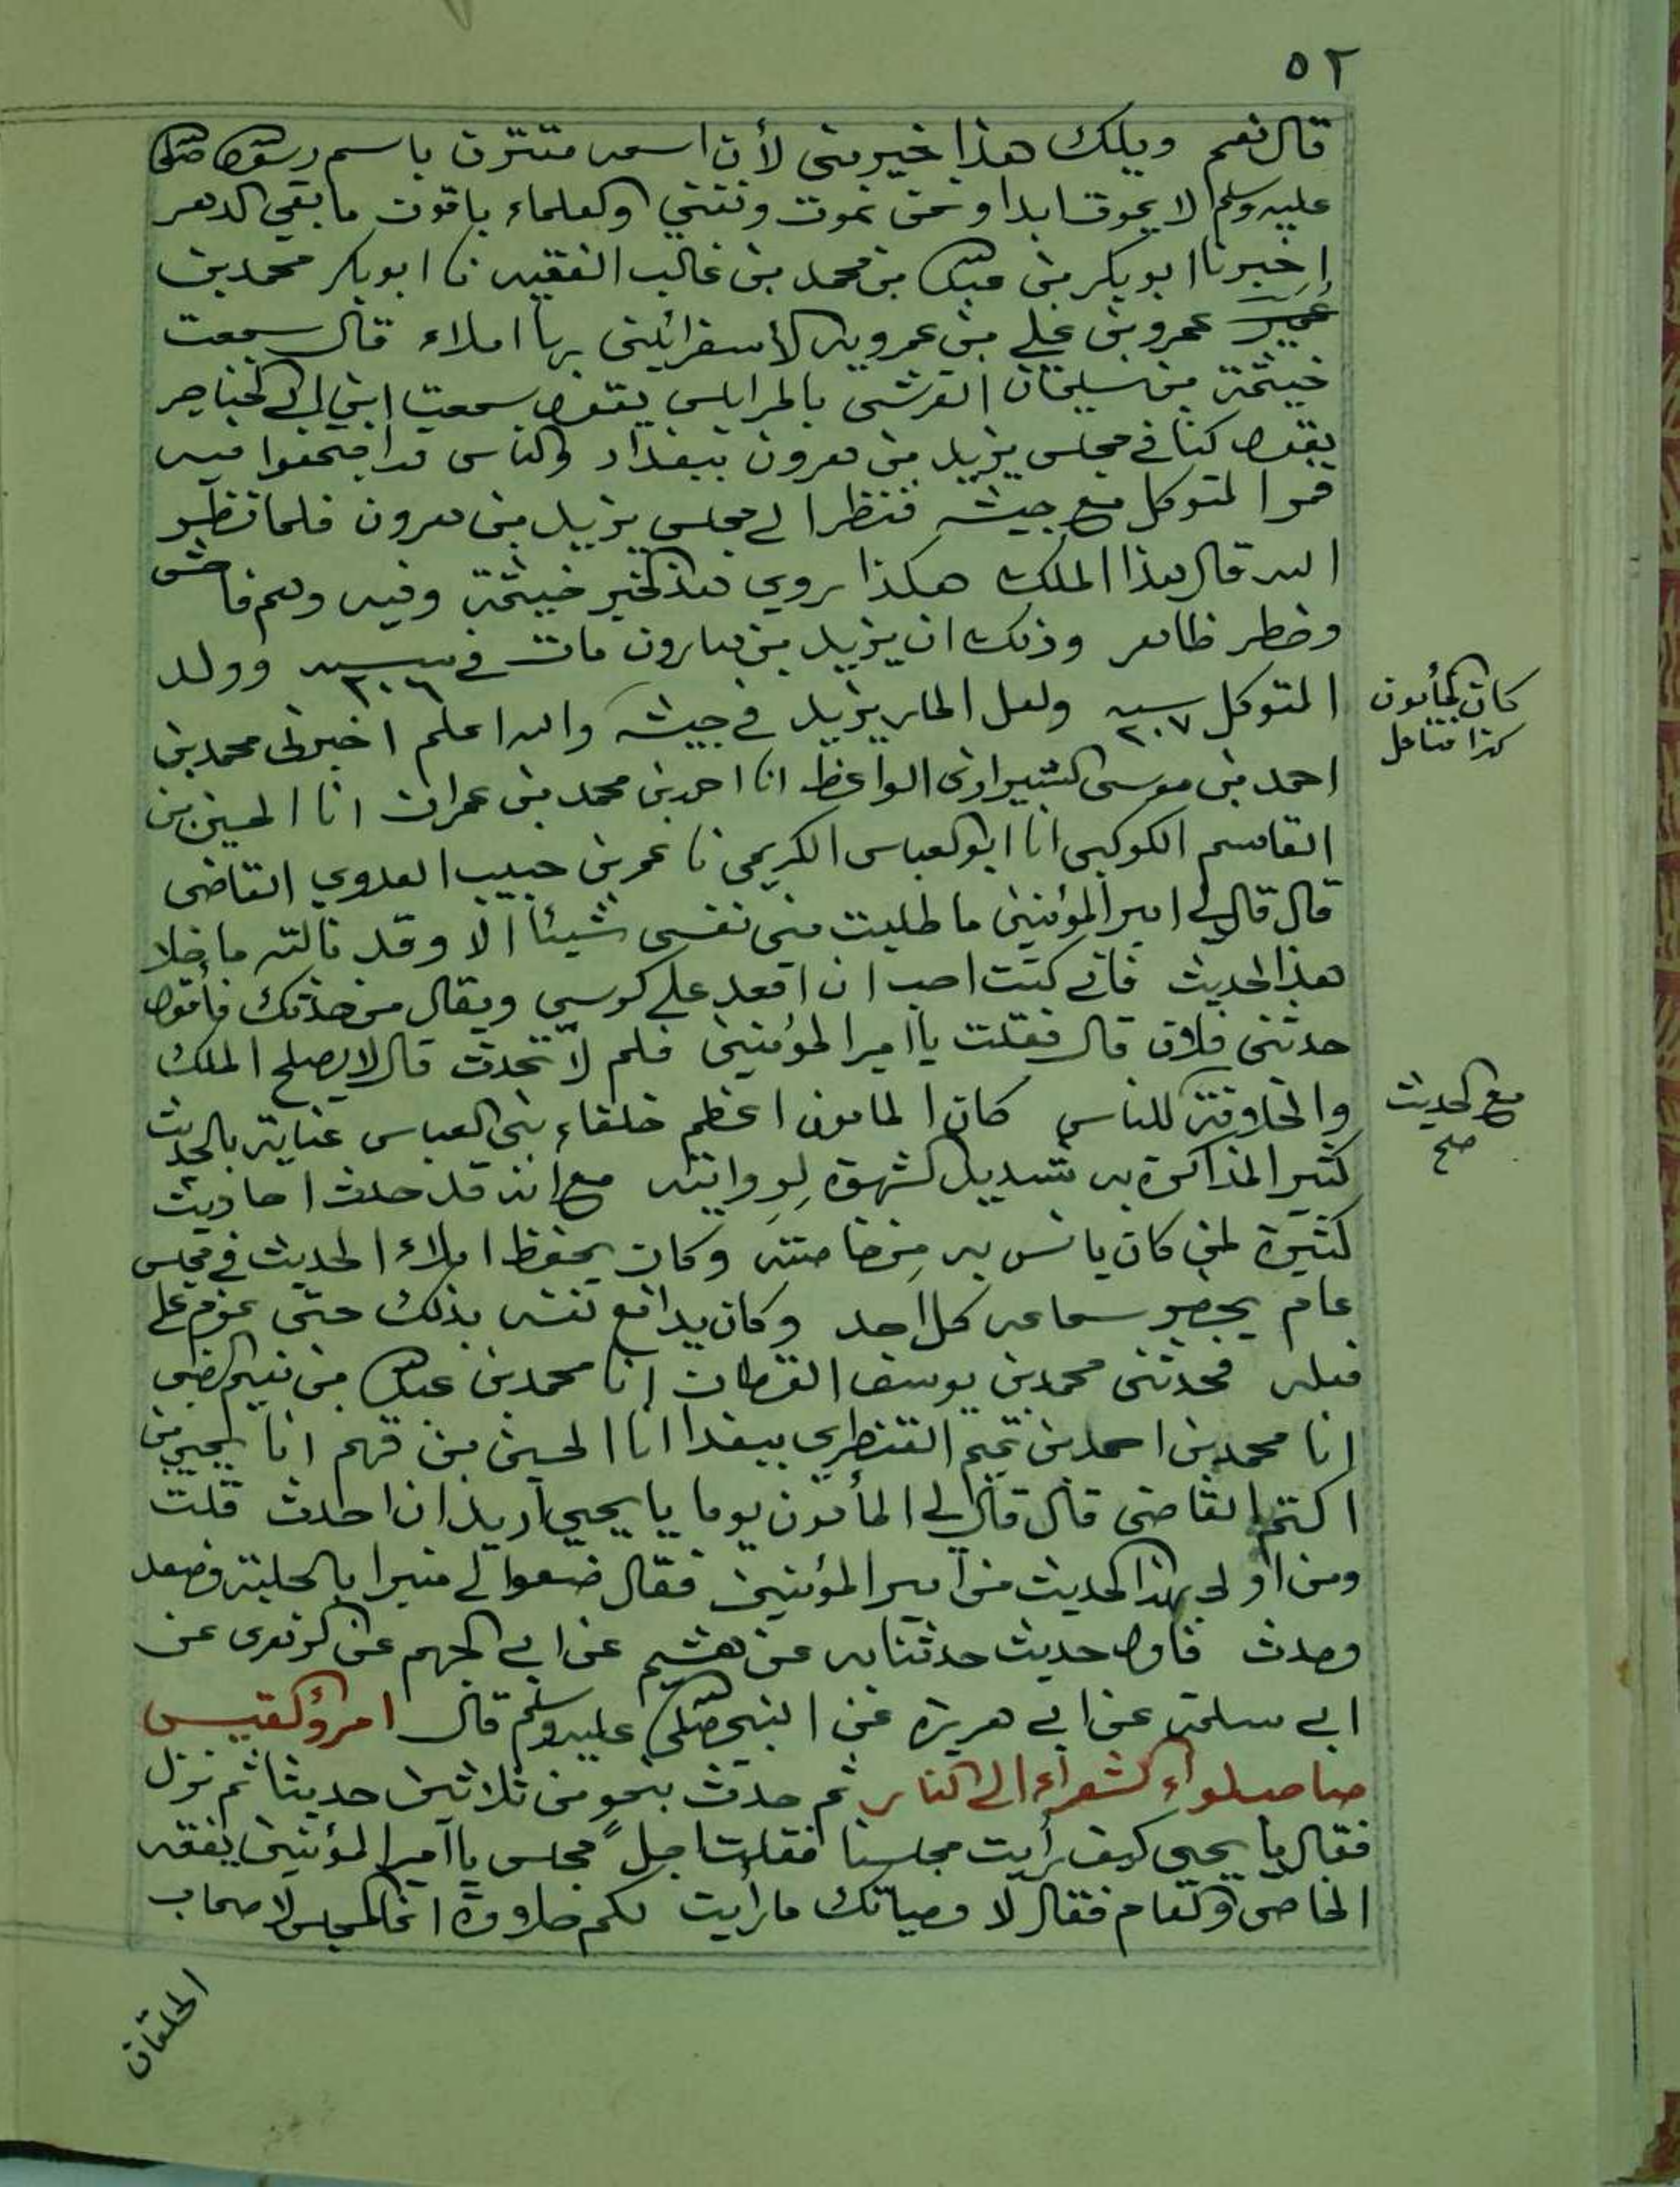 ٥٢
قال نعم ويلك هذا خير مني لأن اسمه مقترن باسم رسول الله صلى الله
عليه وسلم لا يموت ابدا ونحن نموت ونفنى والعلماء باقون ما بقي الدهر
اخبرنا ابو بكر بن عبد الله بن محمد بن غالب الفقيه نا ابو بكر محمد بن
عمرو بن علي بن عمرويه الاسفرائيني بها املاء قال سمعت
خيثمة بن سليمان القرشي بالمرابلس يقول سمعت ابن ابي الخناجر
يقول كنا في مجلس يزيد بن هرون ببغداد والناس قد اجتمعوا فيه
فمر المتوكل مع جيشه فنظر الى مجلس يزيد بن هرون فلما نظر
اليه قال هذا الملك هكذا روي هذا الخبر خيثمة وفيه وهم فاحش
وخطر ظاهر وذلك ان يزيد بن هارون مات في سنه ٢٠٦ وولد
المتوكل سنه ٢٠٧ ولعل المار يزيد في جيشه والله اعلم اخبرني محمد بن
كان المأمون
كذا فتامل
احمد بن موسى الشيرازي الواعظ انا احمد بن محمد بن عمران انا الحسين بن
القاسم الكوكبي انا ابو العباس الكريمي نا عمر بن حبيب العدوي القاضي
قال قال لي امير المؤمنين ما طلبت مني نفسي شيئا الا وقد نالته ما خلا
هذا الحديث فاني كنت احب ان اقعد على كرسي ويقال من حدثك فأقول
حدثني فلان قال فقلت يا امير المؤمنين فلم لا تحدث قال لا يصلح الملك
والخلافة للناس كان المامون اعظم خلفاء بني العباس عناية بالحديث
مع الحديث
صح
كثير المذاكرة به شديد الشهوة لروايته مع انه قد حدث احاديث
كثيرة لمن كان يانس به من خاصته وكان يحفظ املاء الحديث في مجلس
عام يحضر سماعه كل احد وكان يدافع نفسه بذلك حتى عزم على
فعله فحدثني محمد بن يوسف القطان انا محمد بن عبد الله بن نعيم الضبي
انا محمد بن احمد بن تميم القنطري ببغدا انا الحسين بن فهم انا يحيى بن
اكثم القاضي قال قال لي المأمون يوما يا يحيى اريد ان احدث قلت
ومن اولى بهذا الحديث من امير المؤمنين فقال ضعوا لي منبرا بالحلبة فصعد
وحدث فاول حديث حدثنا به عن هشيم عن ابي الجهم عن الزهري عن
ابي سلمة عن ابي هريرة عن النبي صلى الله عليه وسلم قال امرؤ القيس
صاحب لواء الشعراء الى النار ثم حدث بنحو من ثلاثين حديثا ثم نزل
فقال يا يحيى كيف رأيت مجلسنا فقلت اجل مجلس يا امير المؤمنين يفقه
الخاص والعام فقال لا وحياتك ما رأيت لكم حلاوة انما المجلس لاصحاب
الخلقان